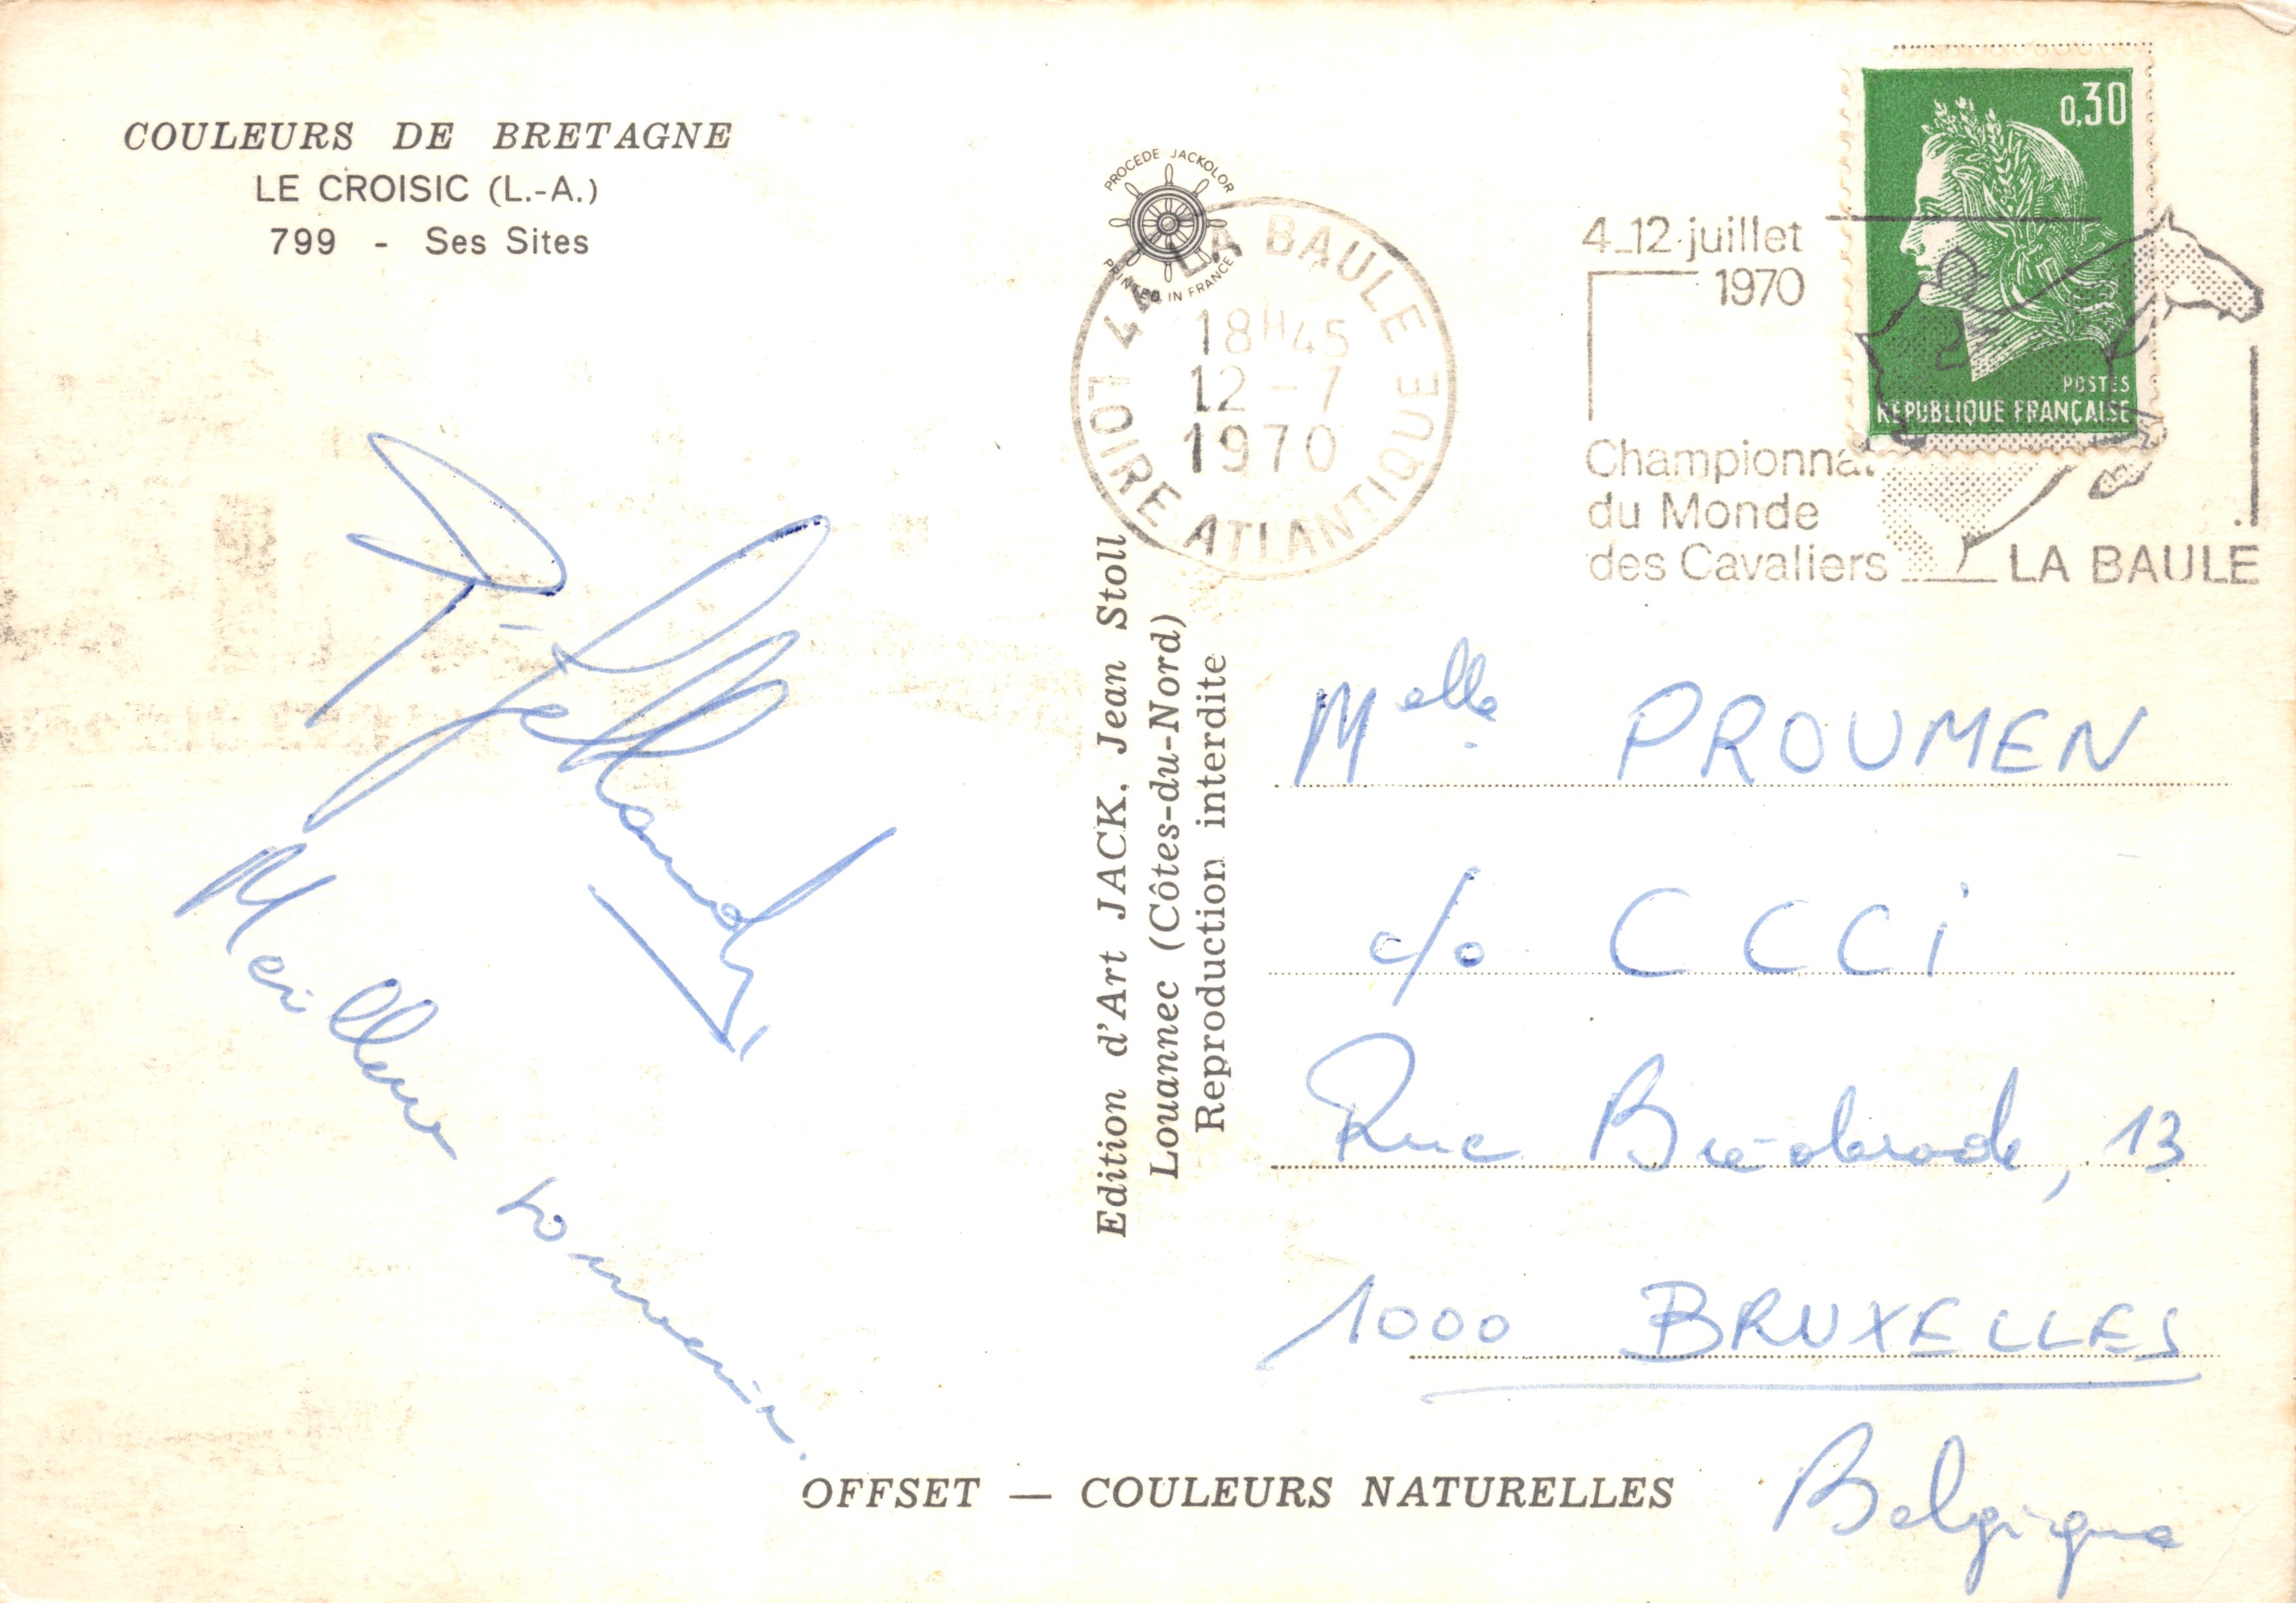 COULEURS DE BRETAGNE
LE CROISIC (L.-A.)
799 - Ses Sites
PROCEDE JACKOLOR
PRINTED IN FRANCE
44 LA BAULE
18H45
12-7
1970
LOIRE ATLANTIQUE
4_12 juillet
1970
Championnat
du Monde
des Cavaliers
LA BAULE
0,30
POSTES
REPUBLIQUE FRANÇAISE
Meilleur souvenir.
Edition d'Art JACK, Jean Stoll
Louannec (Côtes-du-Nord)
Reproduction interdite
Melle PROUMEN
c/o CCCi
Rue 13
1000 BRUXELLES
Belgique
OFFSET — COULEURS NATURELLES